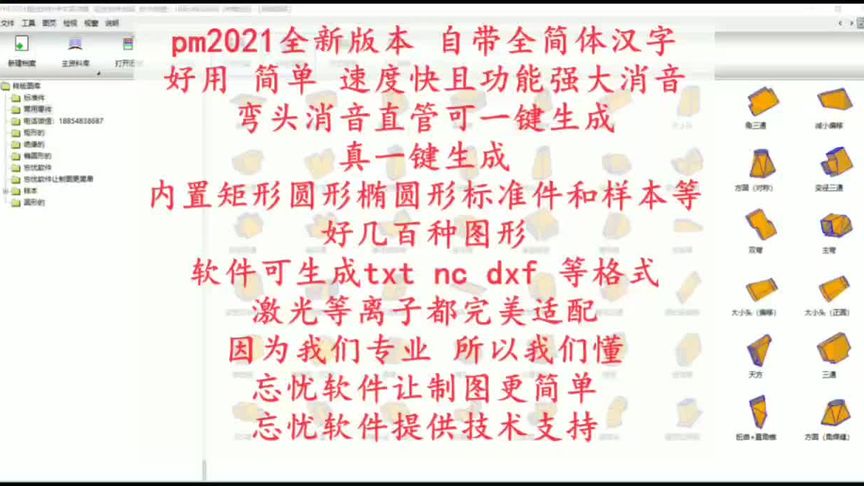 文件 工具 图页 检视 视窗 说明
新建档案 主资料库 打开
pm2021全新版本 自带全简体汉字
好用 简单 速度快且功能强大消音
弯头消音直管可一键生成
真一键生成
内置矩形圆形椭圆形标准件和样本等
好几百种图形
软件可生成txt nc dxf 等格式
激光等离子都完美适配
因为我们专业 所以我们懂
忘忧软件让制图更简单
忘忧软件提供技术支持
样板图库
标准件
常用零件
电话微信: 18854838687
矩形的
绝缘的
椭圆形的
忘忧软件
忘忧软件让制图更简单
样本
圆形的
鱼三通 减小偏移
方圆 (对称) 变径三通
双弯 主弯
大小头 (偏移) 大小头 (正圆)
天方 三通
方圆 (角焊缝)